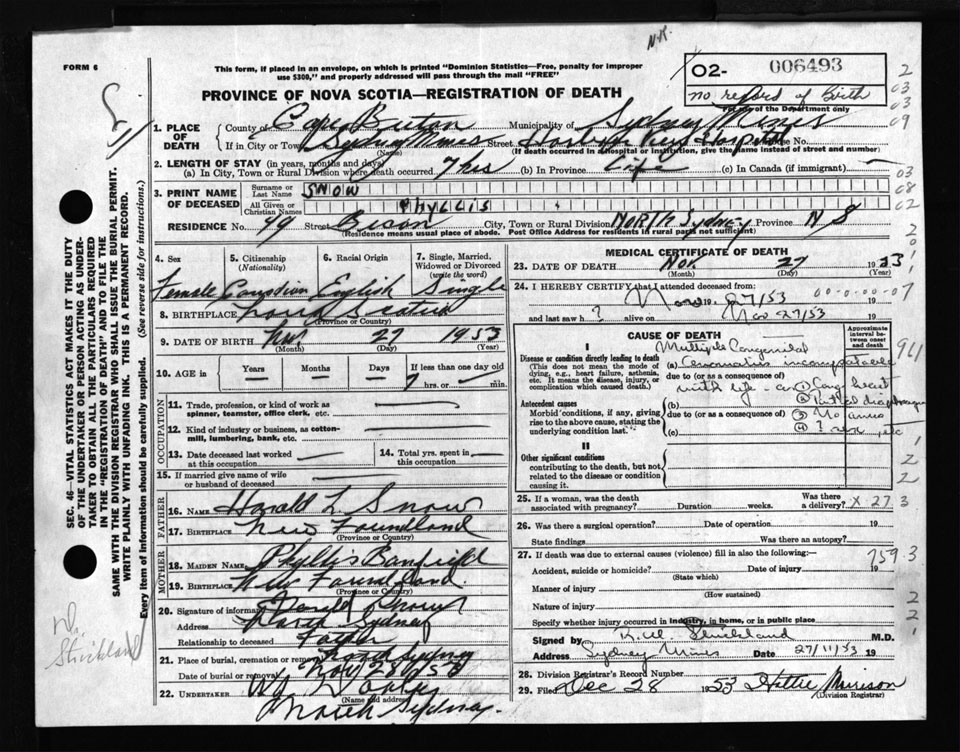 FORM 6
N.R.
This form, if placed in an envelope, on which is printed "Dominion Statistics—Free, penalty for improper
use $300," and properly addressed will pass through the mail "FREE"
PROVINCE OF NOVA SCOTIA—REGISTRATION OF DEATH
02- 006493
no record of birth
For use of the Department only
1. PLACE OF DEATH
County of Cape Breton Municipality of Sydney Mines
If in City or Town Sydney Mines Street Hospital No.
(Name) (If death occurred in a hospital or institution, give the name instead of street and number)
2. LENGTH OF STAY (in years, months and days)
(a) In City, Town or Rural Division where death occurred 7 hrs (b) In Province Life (c) In Canada (if immigrant) —
3. PRINT NAME OF DECEASED
Surname or Last Name SNOW
All Given or Christian Names PHYLLIS
RESIDENCE No. 49 Street City, Town or Rural Division NORTH SYDNEY Province N S
(Residence means usual place of abode. Post Office Address for residents in rural parts not sufficient)
4. Sex 5. Citizenship (Nationality) 6. Racial Origin 7. Single, Married, Widowed or Divorced (write the word)
Female Canadian English Single
8. BIRTHPLACE Nova Scotia
(Province or Country)
9. DATE OF BIRTH Nov. 27 1953
(Month) (Day) (Year)
10. AGE in Years Months Days If less than one day old
— — — 7 hrs. or — min.
OCCUPATION
11. Trade, profession, or kind of work as spinner, teamster, office clerk, etc. —
12. Kind of industry or business, as cotton-mill, lumbering, bank, etc. —
13. Date deceased last worked at this occupation — 14. Total yrs. spent in this occupation —
15. If married give name of wife or husband of deceased —
FATHER
16. NAME Harold L Snow
17. BIRTHPLACE New Foundland
(Province or Country)
MOTHER
18. MAIDEN NAME Phyllis Banfield
19. BIRTHPLACE New Foundland.
(Province or Country)
20. Signature of informant Harold Snow
Address North Sydney
Relationship to deceased Father
21. Place of burial, cremation or removal North Sydney
Date of burial or removal Nov
22. UNDERTAKER
(Name and address)
North Sydney.
MEDICAL CERTIFICATE OF DEATH
23. DATE OF DEATH Nov. 27 1953
(Month) (Day) (Year)
24. I HEREBY CERTIFY that I attended deceased from:
Nov 19 27/53
and last saw h ? alive on Nov 27/53
CAUSE OF DEATH
Approximate interval between onset and death
I
Disease or condition directly leading to death
(This does not mean the mode of dying, e.g., heart failure, asthenia, etc. It means the disease, injury, or complication which caused death.)
Multiple Congenital
(a) incompatable
due to (or as a consequence of)
with life
Antecedent causes
Morbid conditions, if any, giving rise to the above cause, stating the underlying condition last.
(b)
due to (or as a consequence of)
(c)
1 Cong heart
3 No anus
4 ? sex, etc
II
Other significant conditions
contributing to the death, but not related to the disease or condition causing it.
25. If a woman, was the death associated with pregnancy? Duration weeks. Was there a delivery? X 27 3
26. Was there a surgical operation? Date of operation 19
State findings Was there an autopsy?
27. If death was due to external causes (violence) fill in also the following:—
Accident, suicide or homicide? Date of injury 19
(State which)
759 3
Manner of injury
(How sustained)
Nature of injury
Specify whether injury occurred in industry, in home, or in public place
Signed by K.W. Strickland M.D.
Address Sydney Mines Date 27/11/53 19
28. Division Registrar's Record Number
29. Filed Dec 28 1953 Hattie Morrison
(Division Registrar)
SEC. 46—VITAL STATISTICS ACT MAKES IT THE DUTY
OF THE UNDERTAKER OR PERSON ACTING AS UNDERTAKER TO OBTAIN ALL THE PARTICULARS REQUIRED
IN THE "REGISTRATION OF DEATH" AND TO FILE THE
SAME WITH THE DIVISION REGISTRAR WHO SHALL ISSUE THE BURIAL PERMIT.
WRITE PLAINLY WITH UNFADING INK. THIS IS A PERMANENT RECORD.
Every item of information should be carefully supplied. (See reverse side for instructions.)
Dr.
Strickland